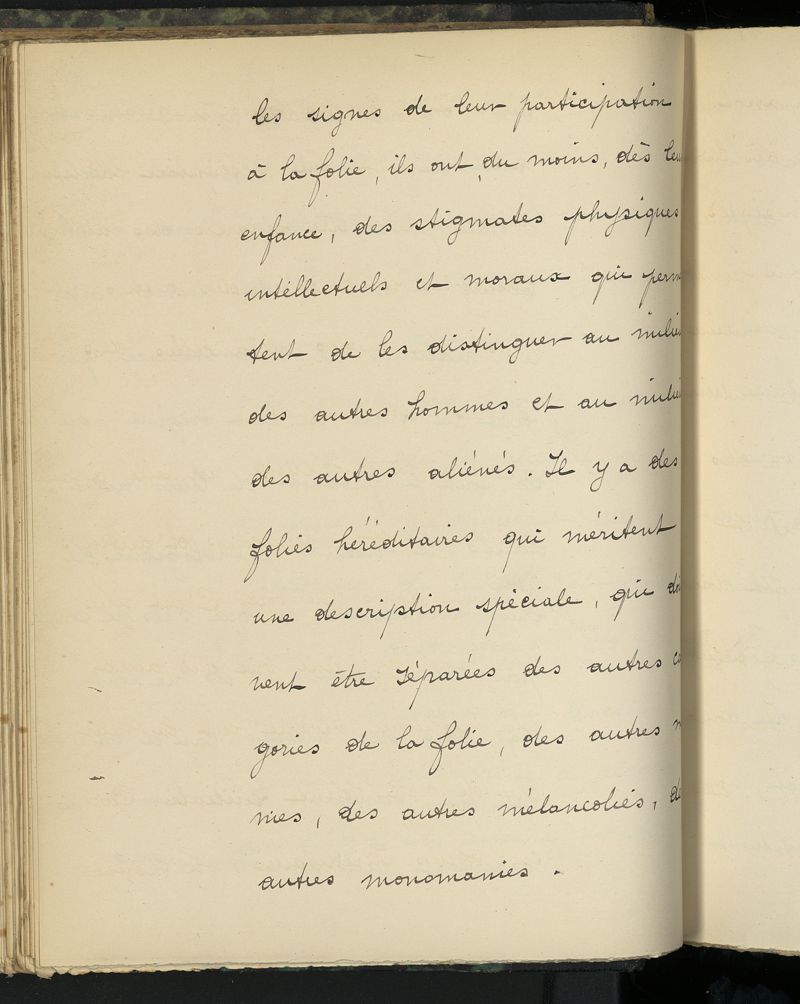 les signes de leur participation
à la folie, ils ont, du moins, dès leu
enfance, des stigmates physiques
intellectuels et moraux qui perm
tent de les distinguer au milieu
des autres hommes et au milieu
des autres aliénés. Il y a des
folies héréditaires qui méritent
une description spéciale, qui doi
vent être séparées des autres ca
gories de la folie, des autres m
nies, des autres mélancolies, de
autres monomanies.